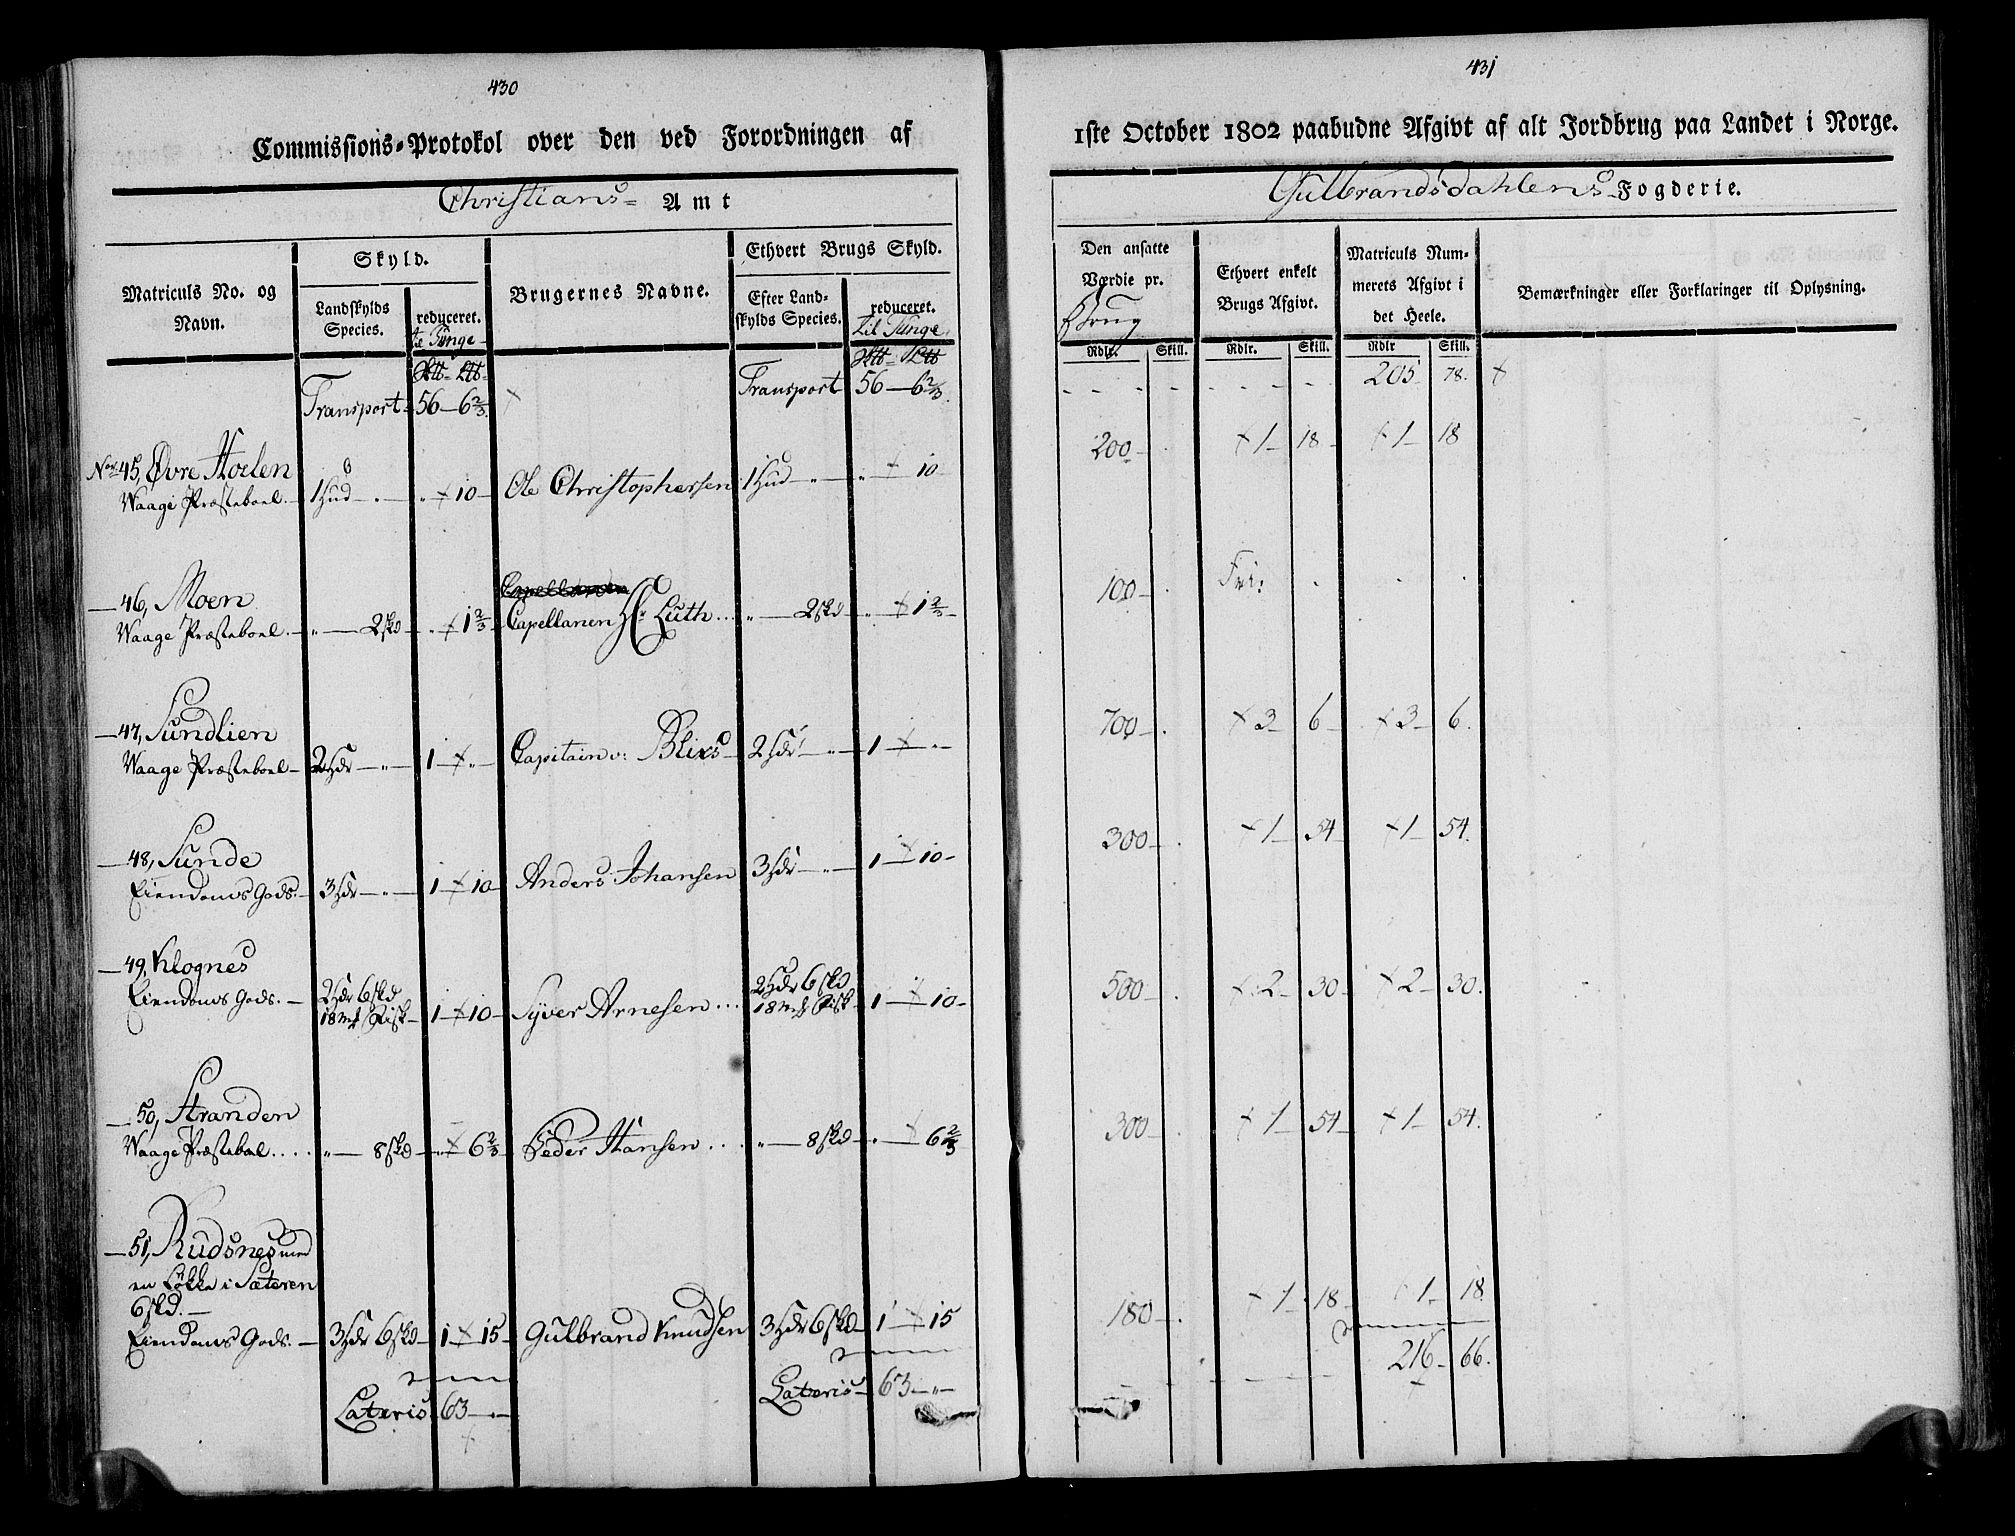 430
Commissions-Protokol over den ved Forordningen af
Christians- Amt
Matriculs No. og Navn.
Skyld.
Landskylds Species.
reduceret.
te Tunge
Brugernes Navne.
Ethvert Brugs Skyld.
Efter Landskylds Species.
reduceret.
til Tunge
Transport 56 - 6 2/3. Transport 56 - 6 2/3.
No. 45, Øvre Hoelen
Waage Præsteboel. 1 Hud - " - " 10 Ole Christophersen 1 Hud - " - " 10
46, Moen
Waage Præsteboel. " - 2 skd - " 1 2/3 Capellanen Hr. Luth... " - 2 skd - " 1 2/3
47, Sundlien
Waage Præsteboel 2 Hdr - " - 1 - " Capitain v: Blixs 2 Hdr - " - 1 - "
48, Sunde
Eiendoms Gods. 3 Hdr - " - 1 - 10 Anders Johansen 3 Hdr - " - 1 - 10
49, Klognes
Eiendoms Gods. 2 Hdr 6 skd 18 mk Fisk 1 - 10 Syver Arnesen... 2 Hdr 6 skd 18 mk Fisk 1 - 10
50, Stranden
Waage Præsteboel.... " - 8 skd - " 6 2/3 Peder Hansen.... " - 8 skd - " 6 2/3
51, Rudsnes med
en Løkke i Sæteren
6 skd.
Eiendoms Gods. 3 Hdr 6 skd 1 - 15 Gulbrand Knudsen 3 Hdr 6 skd 1 - 15
Lateris 63 - " Lateris 63 - "
431
1ste October 1802 paabudne Afgivt af alt Jordbrug paa Landet i Norge.
Gulbrandsdahlens Fogderie.
Den ansatte Værdie pr.
Brug
Ethvert enkelt Brugs Afgivt.
Matriculs Nummerets Afgivt i det Heele.
Bemærkninger eller Forklaringer til Oplysning.
Rdlr. Skill. Rdlr. Skill. Rdlr Skill.
205 78.
200 1 18 1 18
100 Fri.
700 3 6 3 6.
300 1 54 1 54.
500 2 30 2 30.
300 1 54 1 54.
180 1 18 1 18.
216 66.